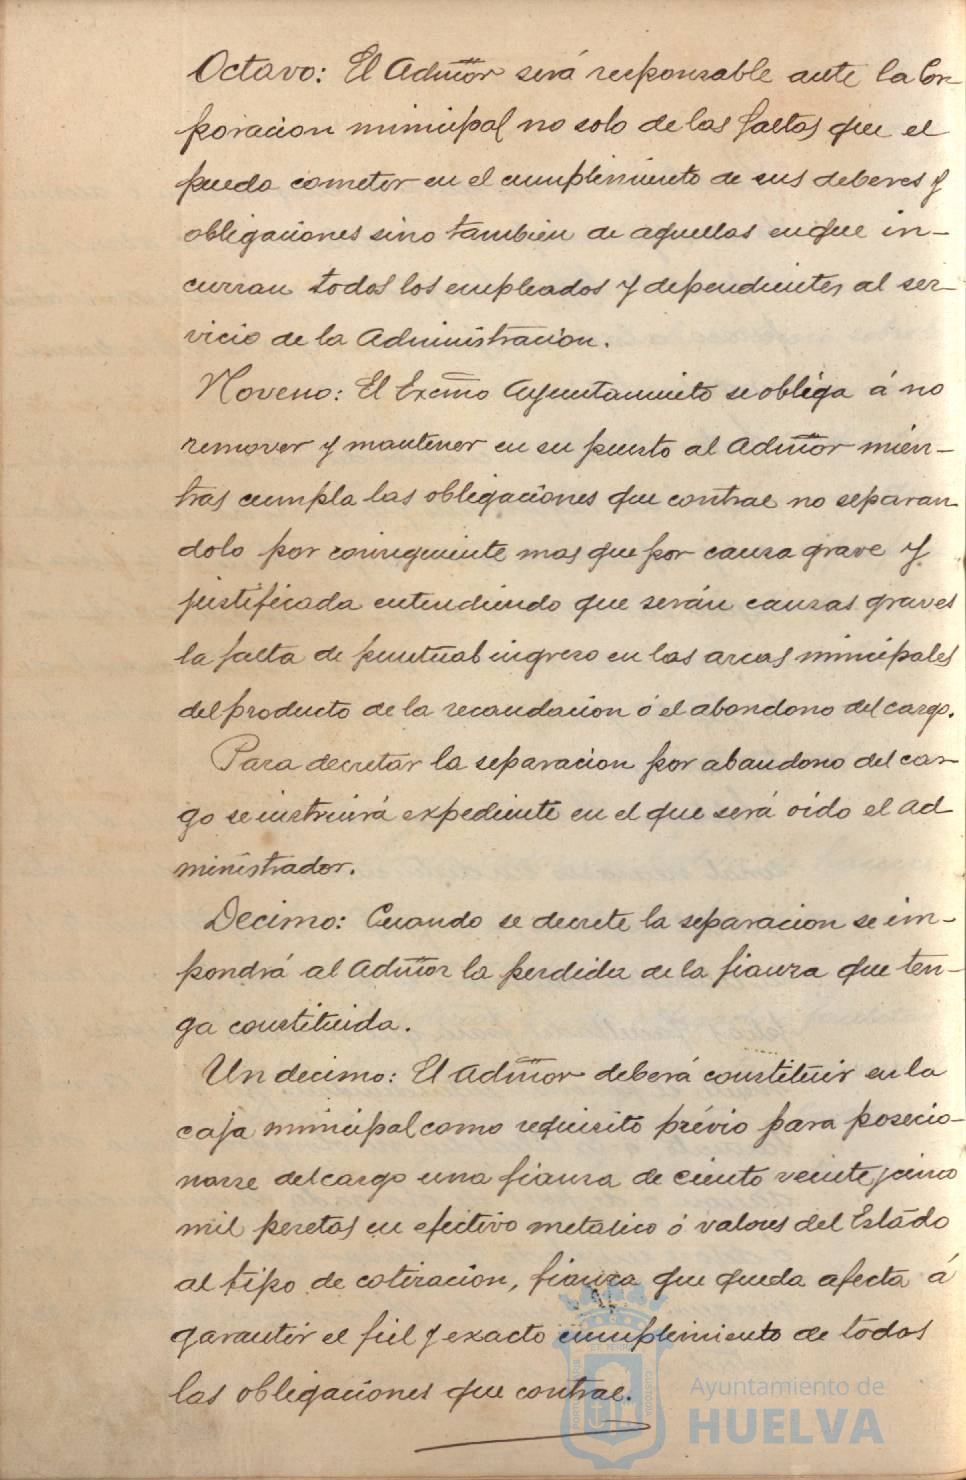 Octavo: El Admor será responsable ante la Cor-
poracion municipal no solo de las faltas que el
pueda cometer en el cumplimiento de sus deberes y
obligaciones sino tambien de aquellas en que in-
curran todos los empleados y dependientes al ser-
vicio de la Administracion.
Noveno: El Excmo Ayuntamiento se obliga á no
remover y mantener en su puesto al Admor mién-
tras cumpla las obligaciones que contrae no separan
dolo por consiguiente mas que por causa grave y
justificada entendiendo que serán causas graves
la falta de puntual ingreso en las arcas municipales
del producto de la recaudacion ó el abondono del cargo.
Para decretar la separacion por abandono del car-
go se instruirá expediente en el que será oido el ad
ministrador.
Decimo: Cuando se decrete la separacion se im-
pondrá al Admor la perdida de la fianza que ten-
ga constituida.
Un decimo: El Admor deberá constituir en la
caja municipal como requisito prévio para posecio-
narse del cargo una fianza de ciento veinte y cinco
mil pesetas en efectivo metalico ó valores del Estádo
al tipo de cotizacion, fianza que queda afecta á
garantir el fiel y exacto cumplimiento de todas
las obligaciones que contrae.
Ayuntamiento de
HUELVA